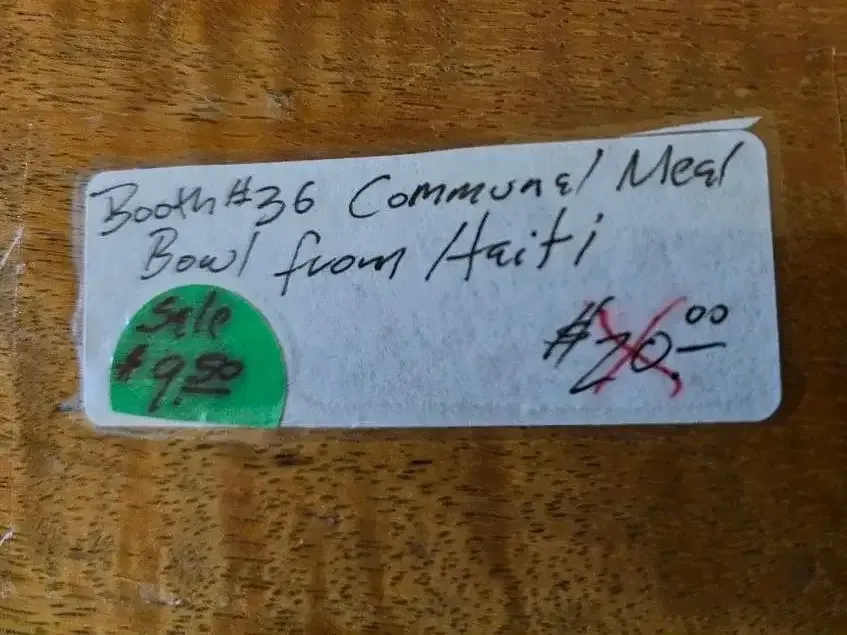 Booth #36 Communal Meal
Bowl from Haiti
Sale
$9.50
$20.00